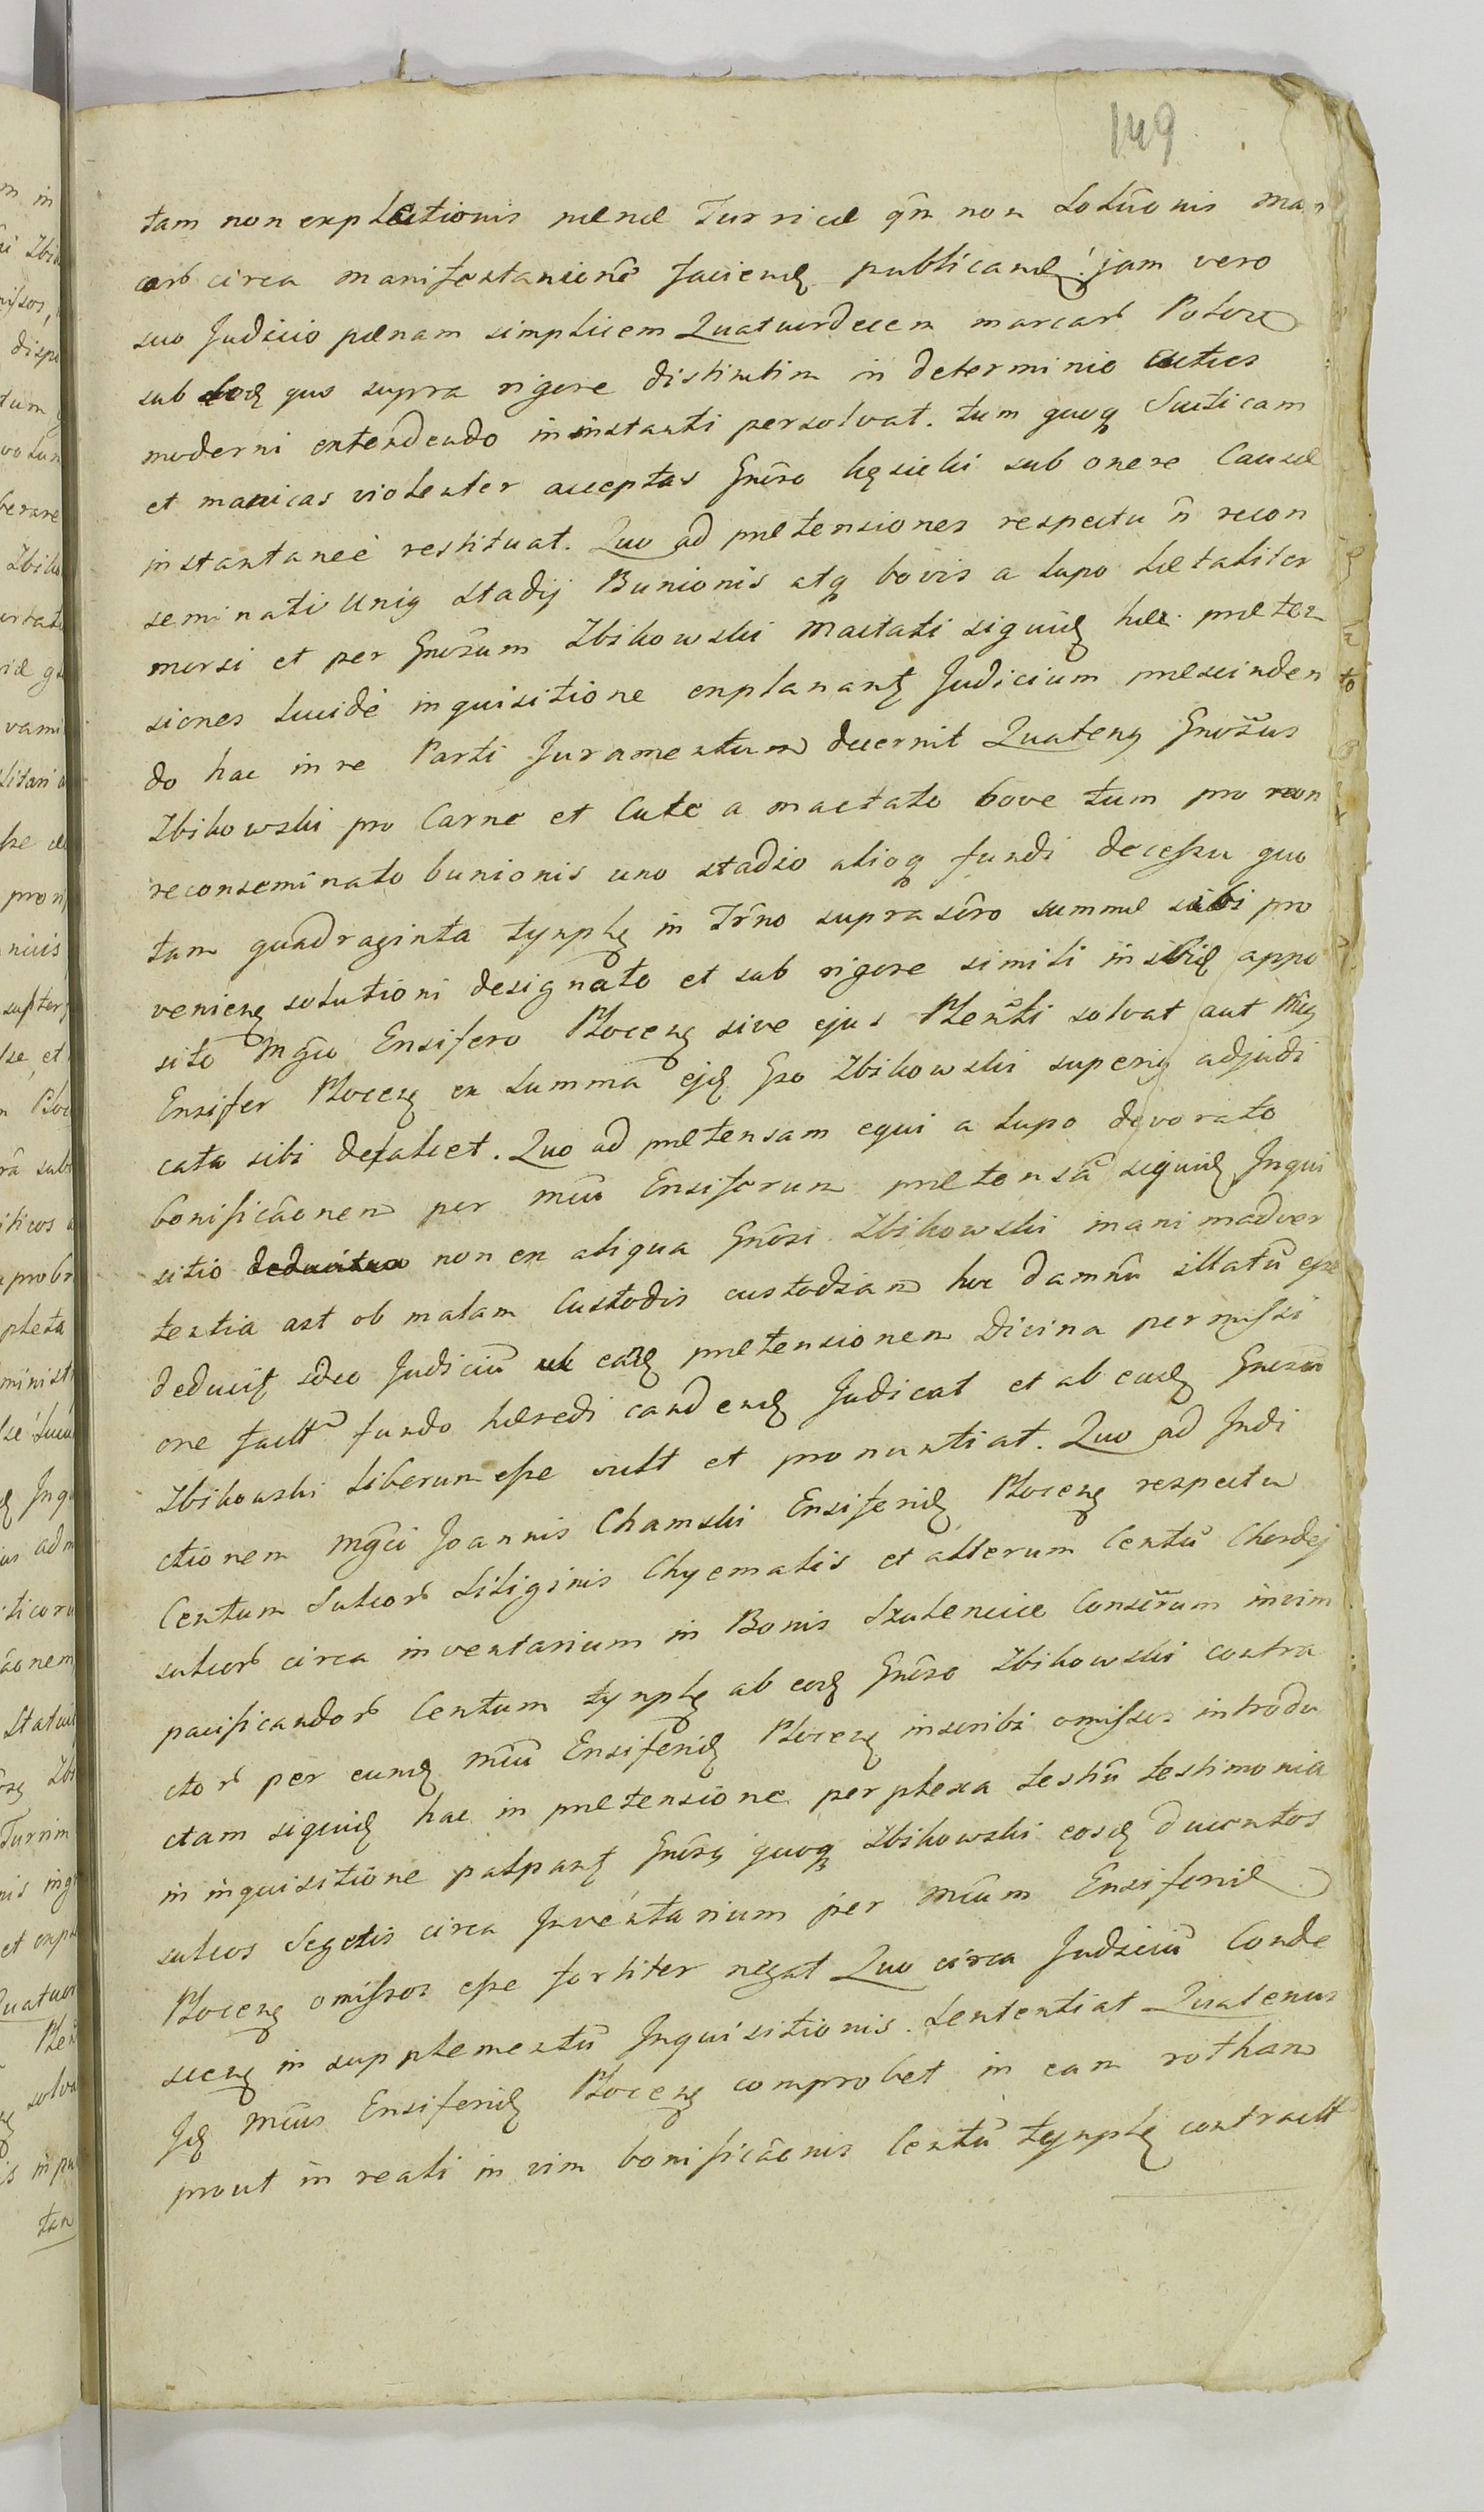 149
tam non expletionis pænæ Turricæ qm̃ non Solũonis mar
carb circa manifestationẽ faciend publicand: jam vero
suo Judicio pænam simplicem Quatuordecem marcarb Polon
sub eod quo supra rigore distinctim in determinio actus
moderni extendendo ininstanti persolvat. tum quoq Suticam
et manicas violenter acceptas Gnõro Kęsicki sub onere Causæ
instantaneè restituat. Quo ad prætensiones respectu ñ recon
seminati Unig stadij Bunionis atq bovis a lupo lætaliter
morsi et per Gnõrum Zbikowski Mactati siquid hæc præten
siones lucidè inquisitione explanant Judicium præscinden
do hac in re Parti Juramentum decernit Quateng Gnõrus
Zbikowski pro Carne et Cute a mactato bove tum pro non
reconseminato bunionis uno stadio alioq fundi decessu quo
tam quadraginta tynph in Trño suprascr̃o summæ sibi pro
venieng solutioni designato et sub rigore simili inibid appo
sito Mg̃co Ensifero Plocen sive ejus Pleñti solvat aut Mg
Ensifer Plocen ex Summa ejd Gso Zbikowski superig adjudi
cata sibi defalcet. Quo ad prætensam equi a lupo devorato
bonificãonem per Mc̃um Ensiferum prætensã siquid Inqui
sitio deducitur non ex aliqua Gnõrsi Zbikowski inanimadver
tentia ast ob malam Custodis custodiam hoc damnũ illatũ esse
deducit ideo Judiciũ ab ead prætensionem Divina permissi
one fact fundo hæredi cadend Judicat et ab ead Gnorum
Zbikowski liberum esse vult et pronuntiat. Quo ad Indi
ctionem Mg̃ci Joannis Chamski Ensiferid Plocen respectu
Centum Sulcorb Siliginis Chyemalis et alterum Centũ Chordej
sulcorb circa inventarium in Bonis Szulencice Conscr̃um invim
pacificandorb Centum tynph ab eod Gnõro Zbikowski contra
ctorb per eund Mc̃ũ Ensiferid Plocen inscribi omissos introdu
ctam siquid hac in prætensione perplexa testiũ testimonia
in inquisitione palpant Gnõrs quoq Zbikowski eosd ducentos
sulcos Segetis circa Inventarium per Mc̃um Ensiferid
Plocen omissos esse fortiter negat Quo circa Judiciũ Conde
sceng in supplementũ Inquisitionis. Sententiat Quatenus
Id Mc̃us Ensiferid Plocen comprobet in eam rotham
prout in reali in vim bonificãonis Centũ tynph contract